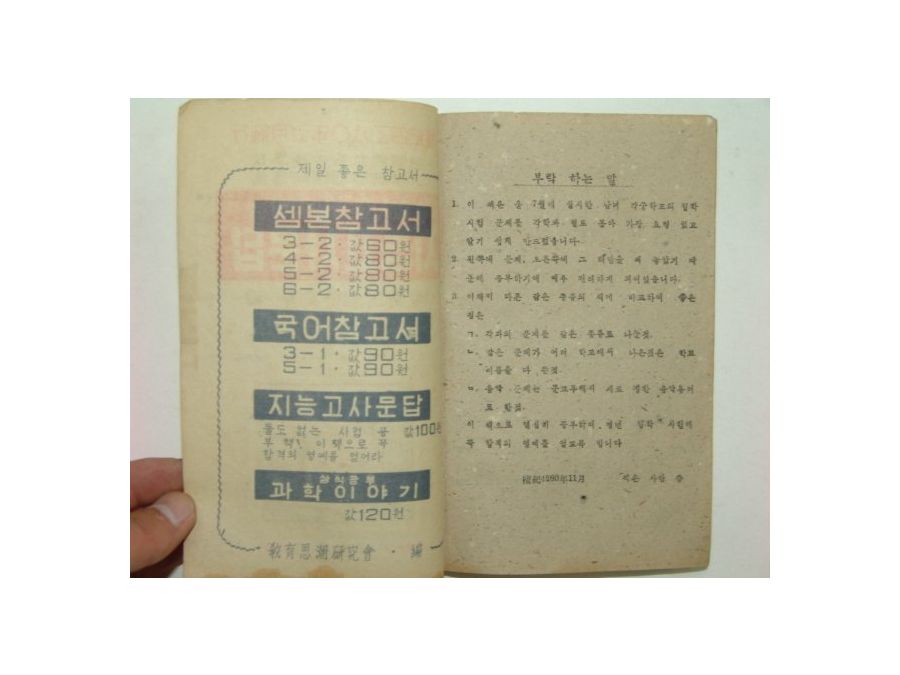 제일 좋은 참고서
셈본참고서
3-2·값60원
4-2·값80원
5-2·값80원
6-2·값80원
국어참고서
3-1·값90원
5-1·값90원
지능고사문답
둘도 없는 시험 공 값100원
부 책! 이 책으로 꼭
합격의 영예를 얻어라
상식공부
과학이야기
값120원
敎育思潮硏究會·編
부탁 하는 말
1. 이 책은 7월에 실시한 남녀 각중학교의 입학
시험 문제를 각학과 별로 모아 가장 요령 있고
알기 쉽게 만드렀습니다.
2. 왼쪽에 문제, 오른쪽에 그 해답을 써 놓았기 때
문에 공부하기에 매우 편리하게 되어있습니다.
3. 이책이 다른 같은 종류의 책에 비교하여 좋은
점은
ㄱ. 각과의 문제를 같은 종류로 나눈것.
ㄴ. 같은 문제가 여러 학교에서 나온것은 학교
이름을 다 쓴것.
ㄷ. 음악 문제는 문교부에서 새로 정한 음악용어
로 한것.
이 책으로 열심히 공부하여 명년 입학 시험에
꼭 합격의 영예를 얻고록 합니다
檀紀4280年11月 적은 사람 씀